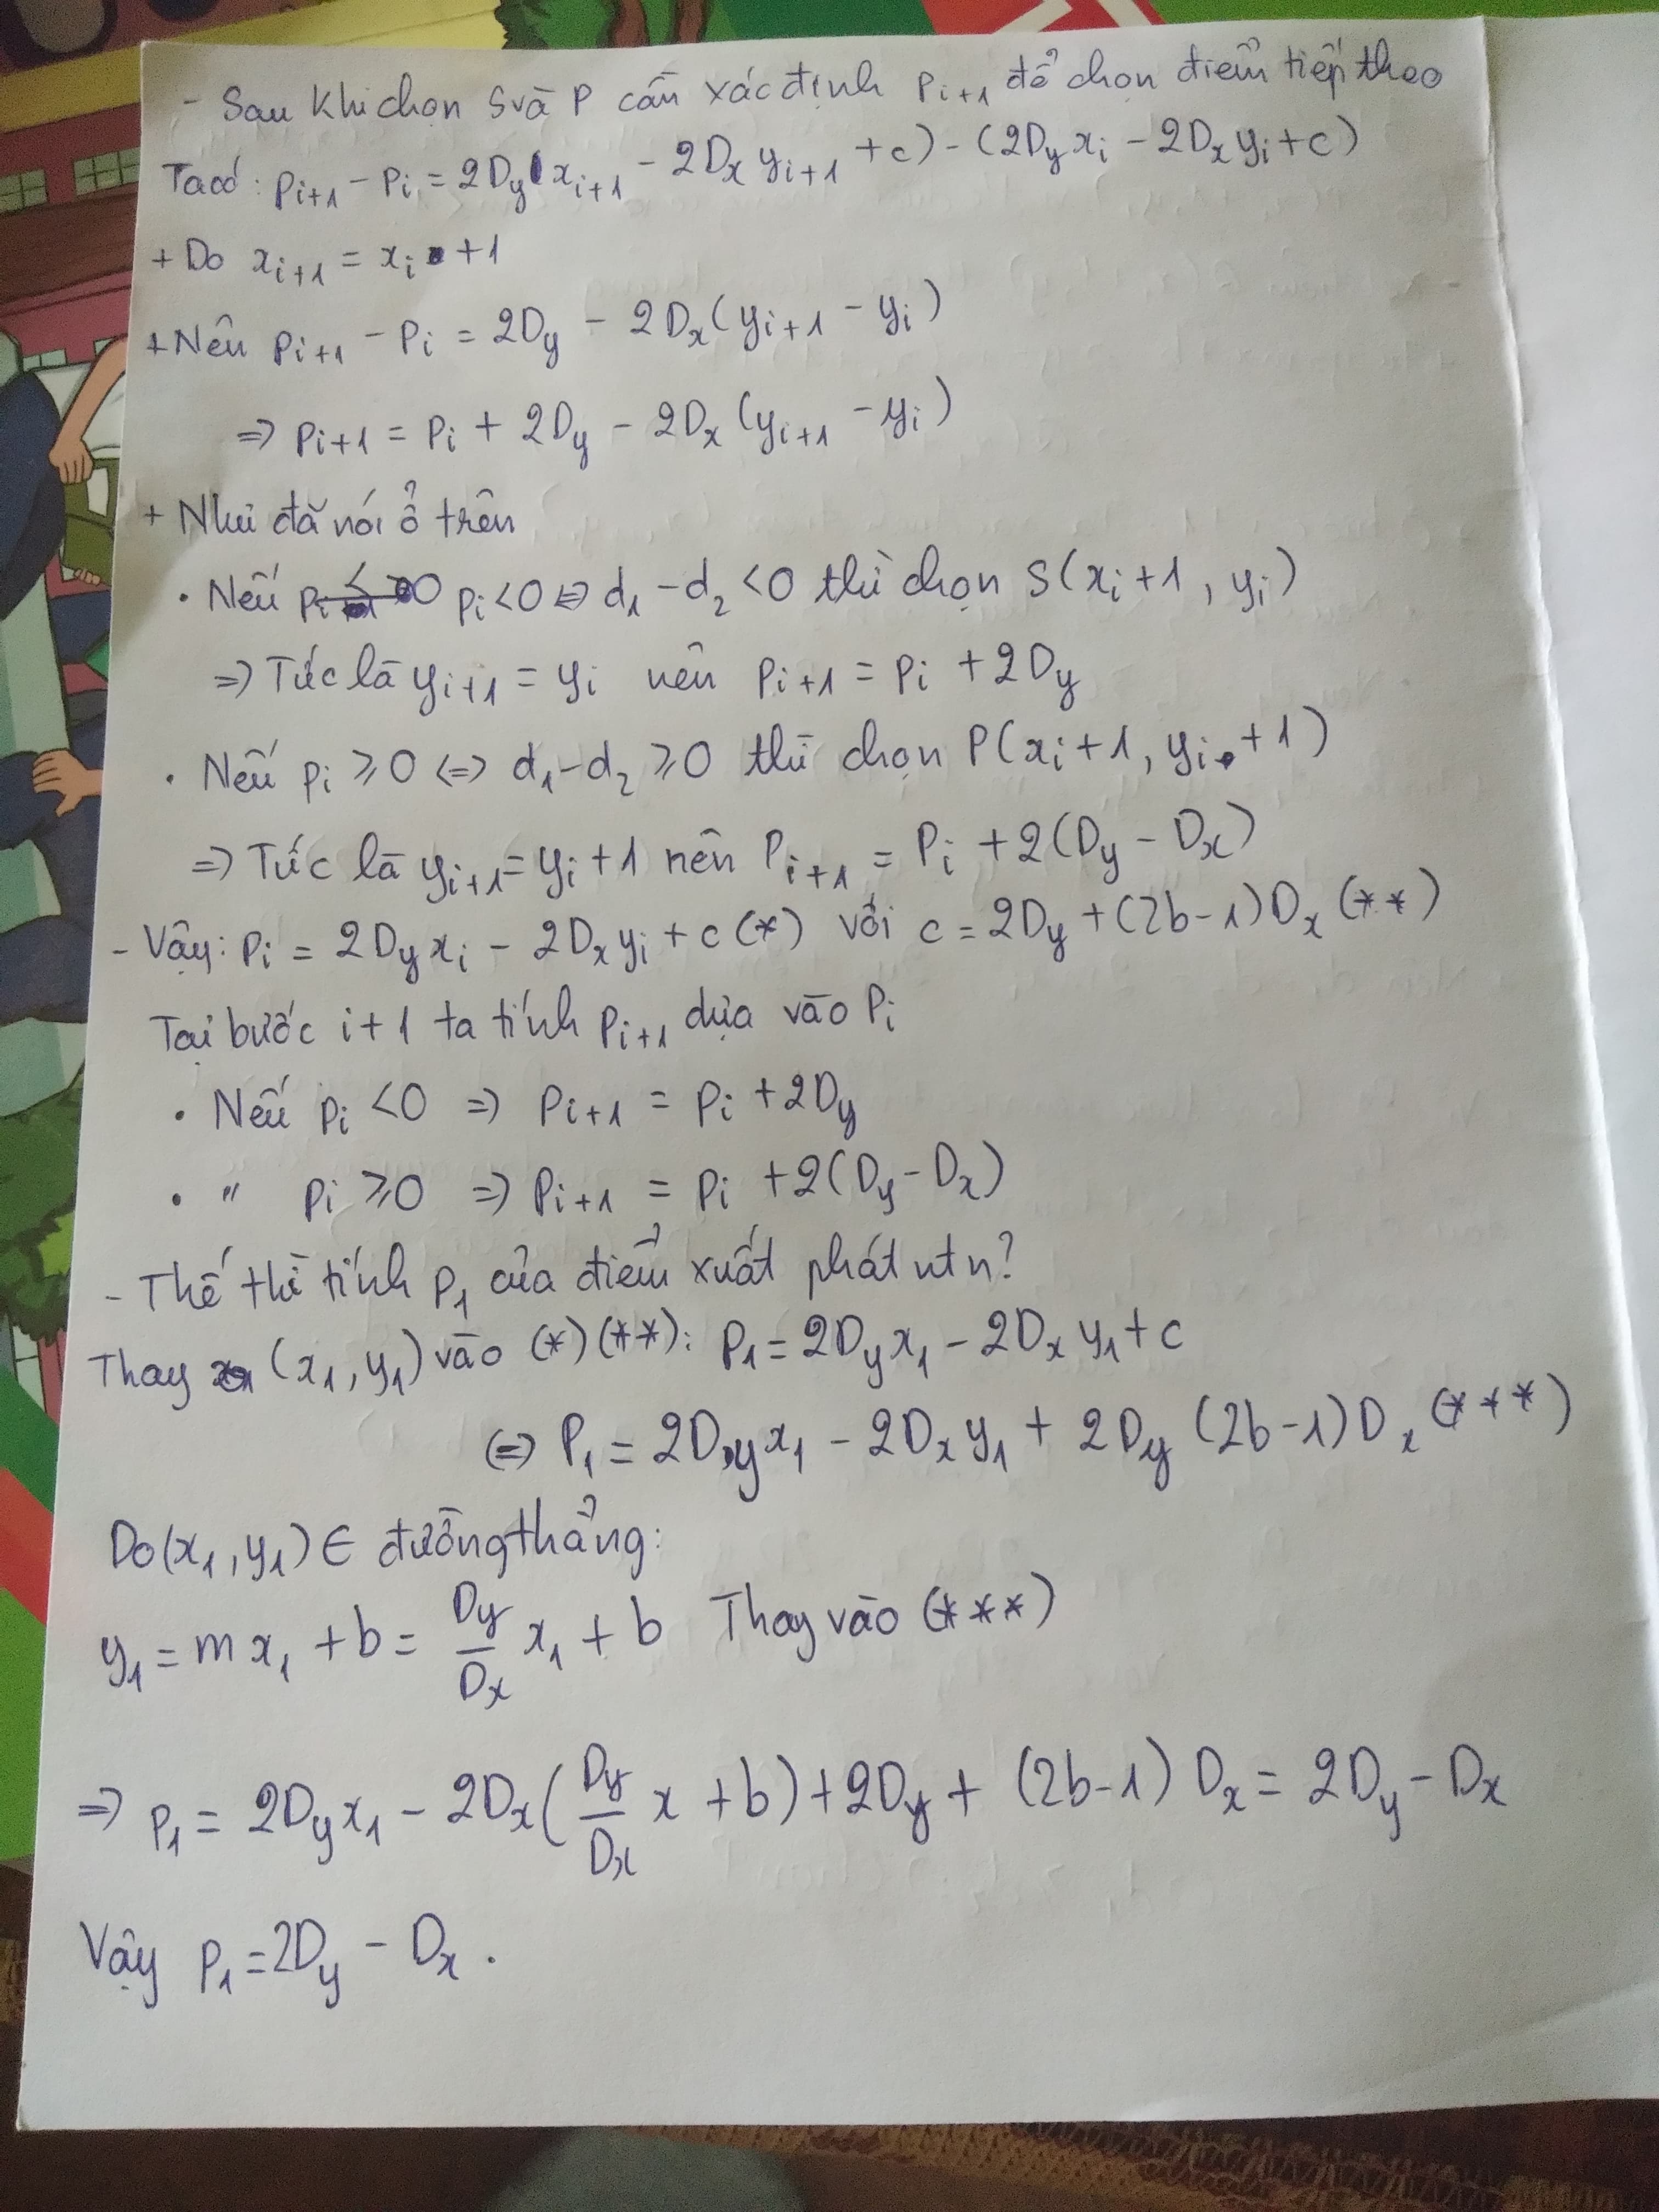 - Sau khi chọn S và P cần xác định Pi+1 để chọn điểm tiếp theo
Ta có: Pi+1 - Pi = 2Dy(xi+1 - 2Dx yi+1 + c) - (2Dy xi - 2Dx yi + c)
+ Do xi+1 = xi + 1
+ Nên Pi+1 - Pi = 2Dy - 2Dx(yi+1 - yi)
=> Pi+1 = Pi + 2Dy - 2Dx(yi+1 - yi)
+ Như đã nói ở trên
• Nếu pi<0 <=> d1 - d2 <0 thì chọn S(xi+1, yi)
=> Tức là yi+1 = yi nên Pi+1 = Pi + 2Dy
• Nếu pi ⩾0 <=> d1-d2 ⩾0 thì chọn P(xi+1, yi+1)
=> Tức là yi+1 = yi+1 nên Pi+1 = Pi + 2(Dy - Dx)
- Vậy: Pi = 2Dy xi - 2Dx yi + c (*) với c = 2Dy + (2b-1)Dx (**)
Tại bước i+1 ta tính Pi+1 dựa vào Pi
• Nếu pi <0 => Pi+1 = Pi + 2Dy
• " pi ⩾0 => Pi+1 = Pi + 2(Dy - Dx)
- Thế thì tính P1 của điểm xuất phát ntn?
Thay (x1, y1) vào (*)(**): P1 = 2Dy x1 - 2Dx y1 + c
<=> P1 = 2Dy x1 - 2Dx y1 + 2Dy (2b-1)Dx (***)
Do (x1, y1) ∈ đường thẳng:
y1 = mx1 + b = Dy/Dx x1 + b Thay vào (***)
=> P1 = 2Dy x1 - 2Dx(Dy/Dx x + b) + 2Dy + (2b-1) Dx = 2Dy - Dx
Vậy P1 = 2Dy - Dx.